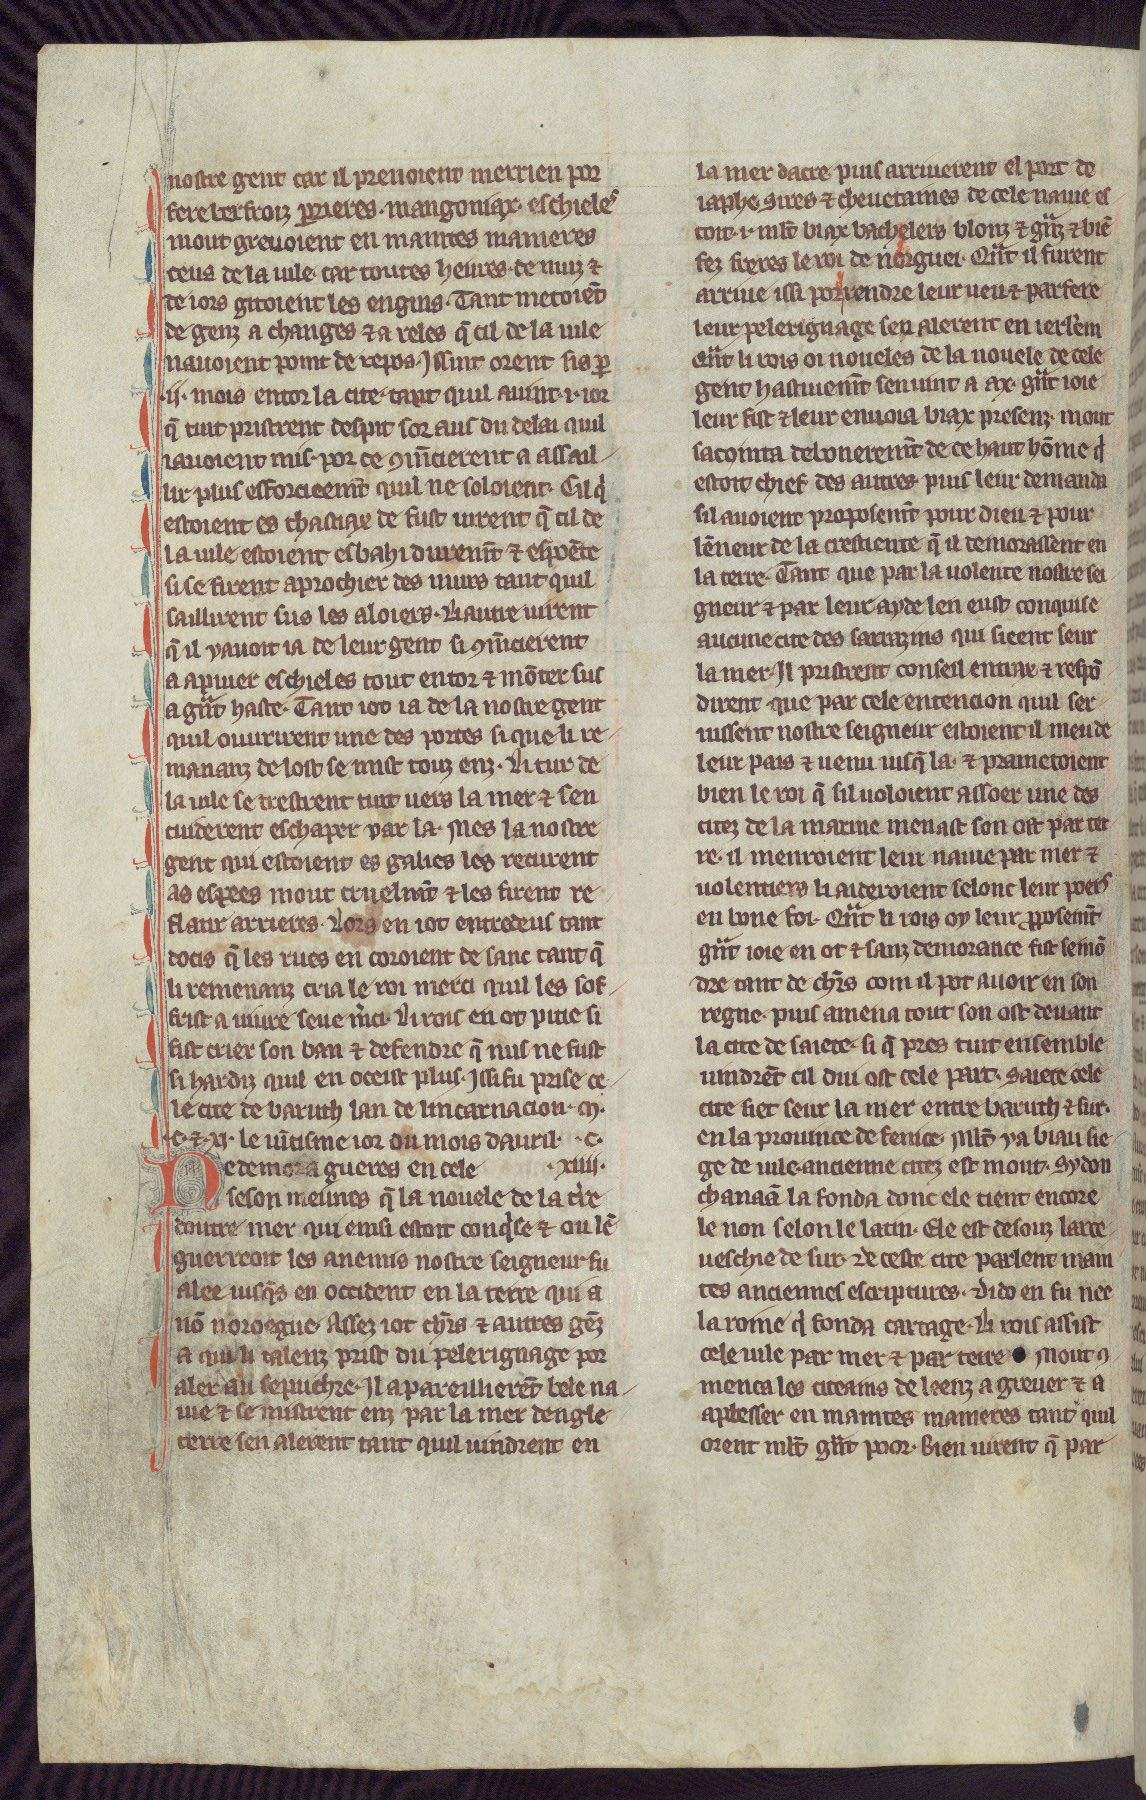 nostre gent car il prenoient merrien por
fere berfroiz perrieres. mangoniax. eschieles
mout grevoient en maintes manieres
ceus de la vile. car toutes heures. de nuiz ⁊
de iors gitoient les engins. Tant metoiēt
de genz a changes ⁊ a reles q̄ cil de la vile
navoient point de repos. Issint orent sis p̱
.ii. mois entor la cite. tant quil avint .i. ior
q̄ tuit pristrent despit sor aus du delai quil
iavoient mis. por ce ꝯm̄cierent a assail-
lir plus esforcieem̄t quil ne soloient. Cil q̇
estoient es chastiax de fust virent q̄ cil de
la vile estoient esbahi durem̄t ⁊ espoēte
si se firent aprochier des murs tant quil
saillirent sus les aloiers. Li autre virent
q̄ il yavoit ia de leur gent si ꝯm̄cierent
a apuier eschieles tout entor ⁊ mōter sus
a gr̄nt haste. Tant iot ia de la nostre gent
quil ouvrirent une des portes si que li re-
mananz de lost se mist touz enz. Li tur de
la vile se trestrent tuit vers la mer ⁊ sen
cuiderent eschaper par la. Mes la nostre
gent qui estoient es galies les recurent
as espees mout cruelm̄t ⁊ les firent re-
flatir arrieres. Lors en iot entredeus tant
docis q̄ les rues en coroient de sanc tant q̄
li remenanz cria le roi merci quil les sof-
frist a vivre seue m̄ci. Li rois en ot pitie si
fist crier son ban ⁊ defendre q̄ nus ne fust
si hardiz quil en oceist plus. Issi fu prise ce-
le cite de baruth lan de lincarnacion. .m.
.c. ⁊ .xi. le vītisme ior du mois davril. .c.
Ne demora gueres en cele .xiiii.
seson meimes q̄ la novele de la tr̄re
doutre mer qui einsi estoit conq̇se ⁊ ou lē
guerreoit les anemis nostre seigneur fu
alee iusq̄s en occident en la terre qui a
nō noroegue. Assez iot ch̄rs ⁊ autres gēz
a qui li talenz prist du pelerignage por
aler au sepuchre. Il apareillierēt bele na-
vie ⁊ se mistrent enz par la mer dengle
terre sen alerent tant quil vindrent en
la mer dacre. puis arriverent el port de
iaphe. Sires ⁊ chevetaines de cele navie es
toit .i. ml̄t biax bachelers blonz ⁊ gr̄nz ⁊ biē
fez freres le roi de norguei. Qūt il furent
arrive issi por rendre leur veu ⁊ parfere
leur pelerignage sen alerent en ierl̄em
Qūt li rois oi noveles de la novele de cele
gent hastivem̄t sen vint a ax. gr̄nt ioie
leur fist ⁊ leur envoia biax presenz. mout
sacointa debonerem̄t de ce haut hōme q̇
estoit chief des autres. puis leur demanda
sil avoient proposem̄t pour dieu ⁊ pour
lēneur de la crestiente q̄ il demorassent en
la terre. Tant que par la volente nostre sei
gneur ⁊ par leur ayde len eust conquise
aucune cite des sarrazins qui sieent seur
la mer. Il pristrent conseil entrax ⁊ respō
dirent que par cele entencion quil ser
vissent nostre seigneur estoient il meu de
leur pais ⁊ venu iusq̄ la. ⁊ prametoient
bien le roi q̄ sil voloient assoer une des
citez de la marine menast son ost par ter
re. il menroient leur navie par mer ⁊
volentiers li aideroient selonc leur poers
en bone foi. Qūt li rois oy leur ꝓposem̄t
gr̄nt ioie en ot ⁊ sanz demorance fist semō
dre tant de ch̄rs com il pot avoir en son
regne. puis amena tout son ost devant
la cite de saiete. si q̄ pres tuit ensemble
vindrēt cil dui ost cele part. Saiete cele
cite siet seur la mer entre baruth ⁊ sur.
en la province de fenice. Ml̄t ya biau sie-
ge de vile. ancienne citez est mout. Sydon
chanaā la fonda donc ele tient encore
le non selon le latin. Ele est desouz larce
veschie de sur. De ceste cite parlent main
tes anciennes escriptures. Dido en fu nee
la roine q̇ fonda cartage. Li rois assist
cele vile par mer ⁊ par terre. Mout ꝯ
menca les citeains de leenz a grever ⁊ a
apresser en maintes manieres tant quil
orent ml̄t gr̄nt poor. Bien virent q̄ par